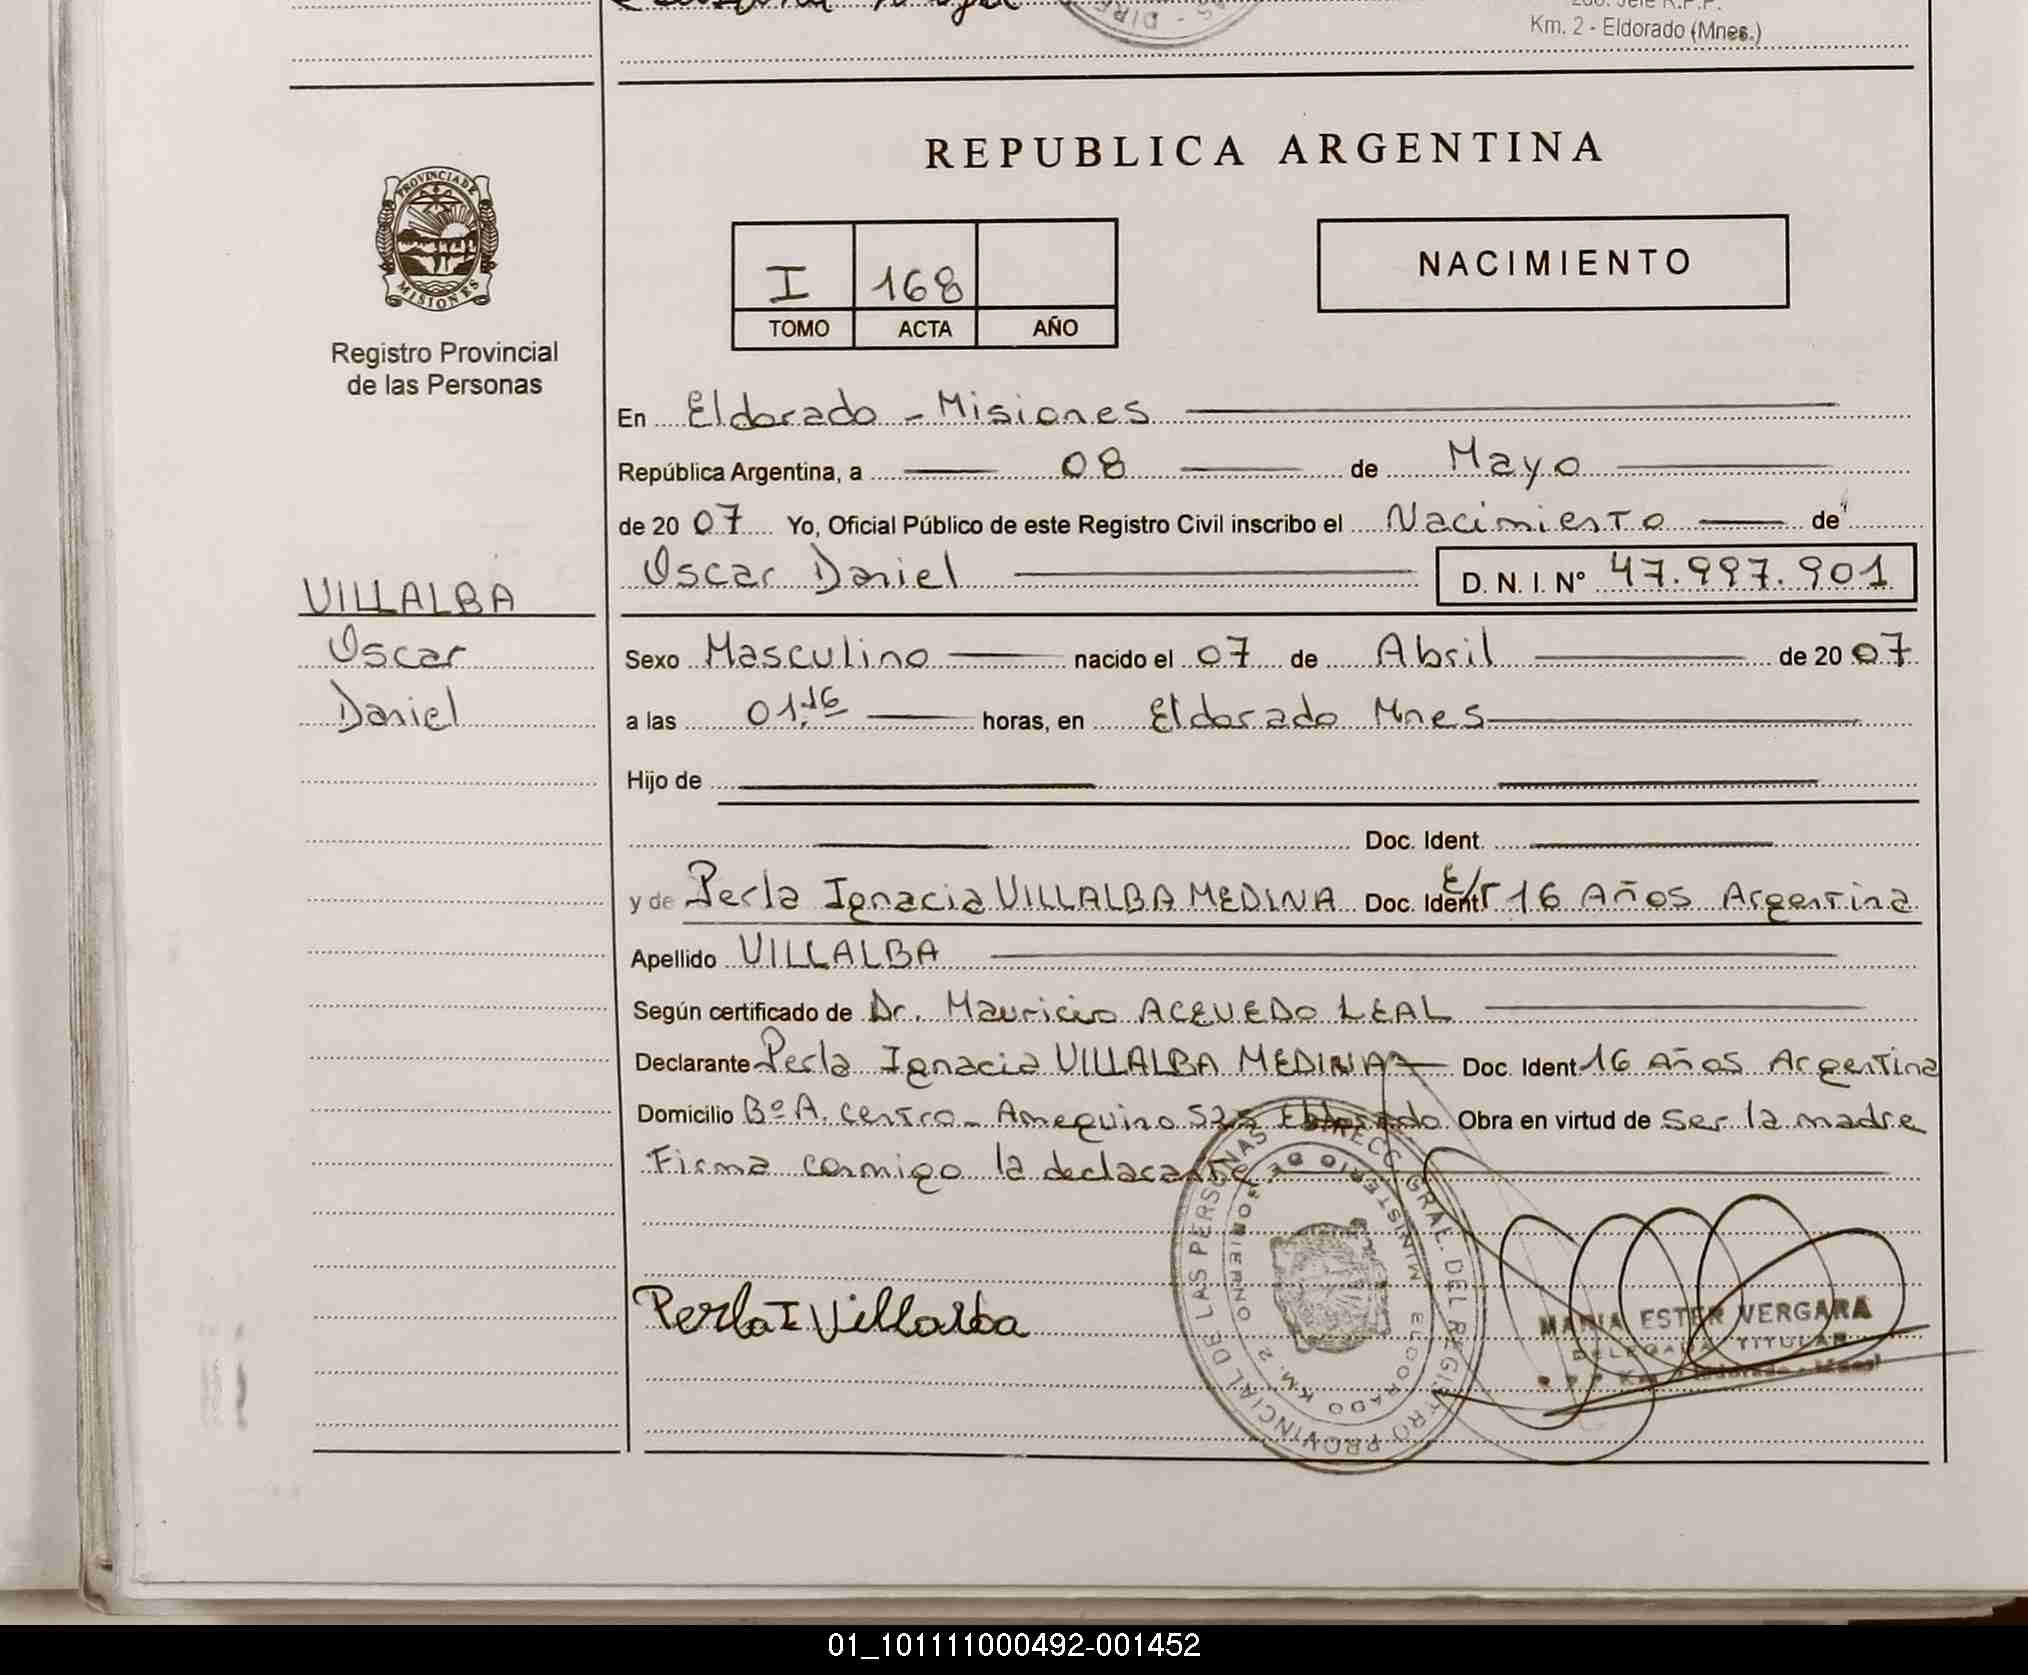 Km. 2 - Eldorado (Mnes.)
REPUBLICA ARGENTINA
PROVINCIA DE
MISIONES
Registro Provincial
de las Personas
I 168
TOMO ACTA AÑO
NACIMIENTO
En Eldorado - Misiones
República Argentina, a 08 de Mayo
de 20 07 Yo, Oficial Público de este Registro Civil inscribo el Nacimiento de
Oscar Daniel D. N. I. Nº 47.997.901
VILLALBA
Oscar
Daniel
Sexo Masculino nacido el 07 de Abril de 20 07
a las 01:16 horas, en Eldorado Mnes
Hijo de
Doc. Ident.
y de Perla Ignacia VILLALBA MEDINA Doc. Ident E/T 16 Años Argentina
Apellido VILLALBA
Según certificado de Dr. Mauricio ACEVEDO LEAL
Declarante Perla Ignacia VILLALBA MEDINA Doc. Ident 16 Años Argentina
Domicilio Bº A. Centro - Ameguino 525 Eldorado Obra en virtud de ser la madre
Firma conmigo la declarante
DIRECC. GRAL. DEL REGISTRO PROVINCIAL DE LAS PERSONAS
MINISTERIO DE GOBIERNO
ELDORADO KM. 2
Perla I Villalba
MARIA ESTER VERGARA
DELEGADA TITULAR
01_101111000492-001452